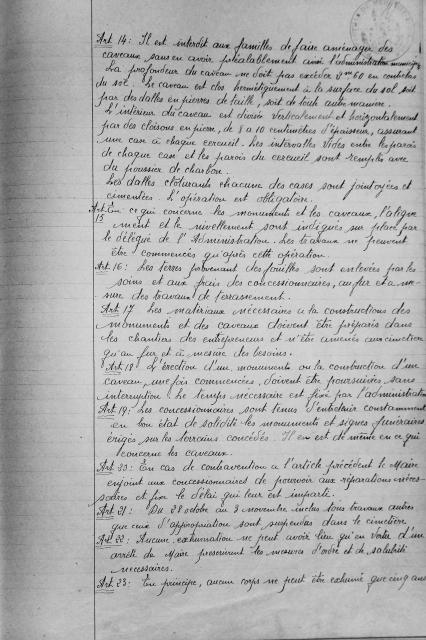 Art 14: Il est interdit aux familles de faire aménager des
caveaux sans en avoir préalablement avisé l'administration municipale
La profondeur du caveau ne doit pas excéder 2m60 en contrebas
du sol. Le caveau est clos hermétiquement à la surface du sol, soit
par des dalles en pierres de taille, soit de toute autre manière.
L'intérieur du caveau est divisé verticalement et horizontalement
par des cloisons en pierre, de 8 a 10 centimètres d'épaisseur, assurant
une case à chaque cercueil. Les intervalles vides entre les parois
de chaque case et les parois du cercueil sont remplis avec
du poussier de charbon.
Les dalles clôturants chacune des cases sont jointoyées et
cimentées. L'opération est obligatoire.
Art 15 En ce qui concerne les monuments et les caveaux, l'aligne
ment et le nivellement sont indiqués sur place par
le délégué de l'Administration. Les travaux ne peuvent
être commencés qu'après cette opération.
Art. 16: Les terres provenant des fouilles sont enlevées par les
soins et aux frais des concessionnaires, au fur et à me-
sure des travaux de terrassement.
Art 17 Les matériaux nécessaires a la constructions des
monuments et des caveaux doivent être préparés dans
les chantiers des entrepreneurs et n'être amenés au cimetière
qu'au fur et à mesure des besoins.
Art 18 L'érection d'un monuments ou la construction d'un
caveau, une fois commencées, doivent être poursuivies sans
interruption. Le temps nécessaire est fixé par l'administration
Art 19: Les concessionnaires sont tenus d'entretenir constamment
en bon état de solidité les monuments et signes funéraires
érigés sur les terrains concédés. Il en est de même en ce qui
concerne les caveaux.
Art 20: En cas de contravention a l'article précédent le Maire
enjoint aux concessionnaires de pourvoir aux réparations néces-
saires et fixe le délai qui leur est imparti.
Art 21: Du 28 octobre au 3 novembre inclus tous travaux autres
que ceux d'appropriation sont suspendus dans le cimetière
Art 22: Aucune exhumation ne peut avoir lieu qu'en vertu d'un
arrêté du Maire prescrivant les mesures d'ordre et de salubrité
nécessaires.
Art 23: En principe, aucun corps ne peut être exhumé que cinq ans